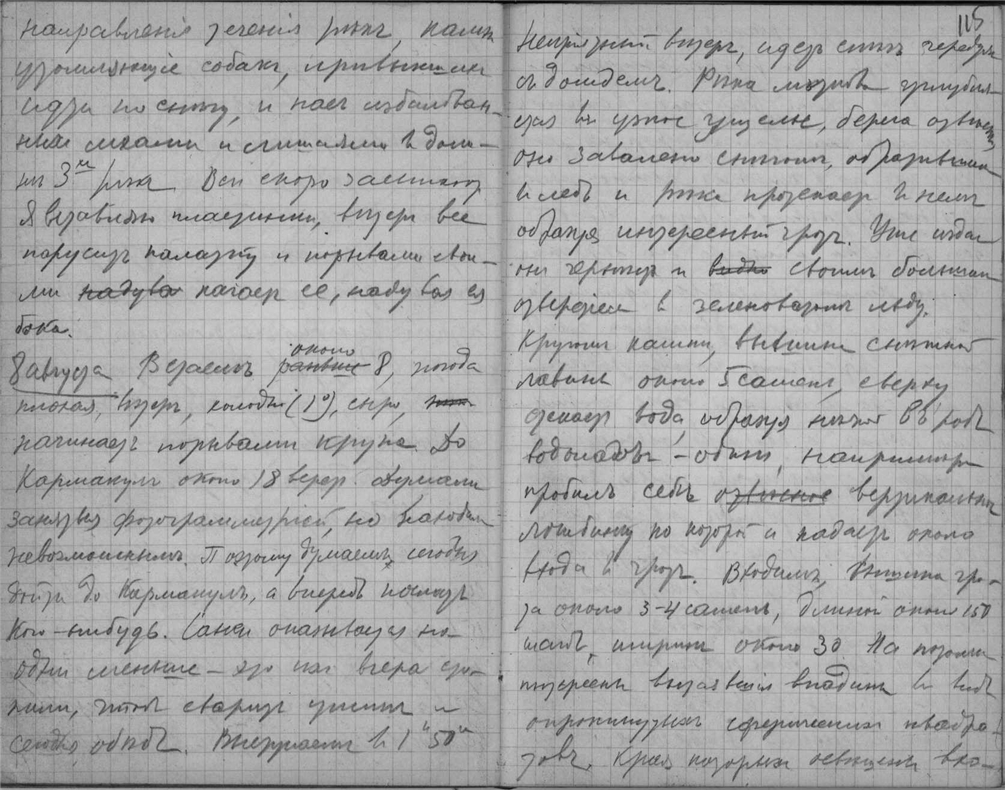 направленія теченія рѣки, камни
утомляющіе собакъ, привыкшихъ
идти по снѣгу, и насъ избалован-
ныхъ мхами и лишаями в доли-
нѣ 3й рѣки Всѣ скоро засыпают
Я вставляю пластинки, вѣтеръ все
парусит палатку и порывами свои-
ми надува качает ее, надувая ея
бока.
8 августа Встаемъ раньше около 8, погода
плохая, вѣтеръ, холодно (1°), сыро,
начинает порывами крупа. До
Кармакулъ около 18 верст. Думали
заняться фотограмметріей, но находим
невозможнымъ. Поэтому думаемъ сегодня
дойти до Кармакулъ, а впередъ послать
кого-нибудь. Саней оказывается на
одни меньше – это нас вчера
пили, чтоб сварить ужинъ и
сегодня обѣдъ. Выступаем в 1ч 50м
115
Непріязный вѣтеръ, идетъ снѣгъ чередуясь
съ дождемъ. Рѣка медленно углубил
ась въ узкое ущелье, берега отвѣсны,
оно завалено снѣгомъ, обратившимся
в ледъ и рѣка протекает в немъ
образуя интересный гротъ. Уже издали
он чернѣет и видно своимъ большим
отверстіем в зеленоватомъ льду.
Кругом камни, вышина снѣжной
лавины около 5 сажень, сверху
стекает вода, образуя нѣчто въ родѣ
водопадовъ – один, напримѣръ
пробилъ себѣ отвѣсное вертикальную
ложбину по которой и падает около
входа в гротъ. Входимъ, Вышина гро-
та около 3-4 сажень, длиной около 150
шаговъ, ширины около 30. На потолкѣ
интересны вытаявшія впадины в видѣ
опрокинутыхъ сферическихъ квадра-
товъ. Края которыхъ освещены вхо-